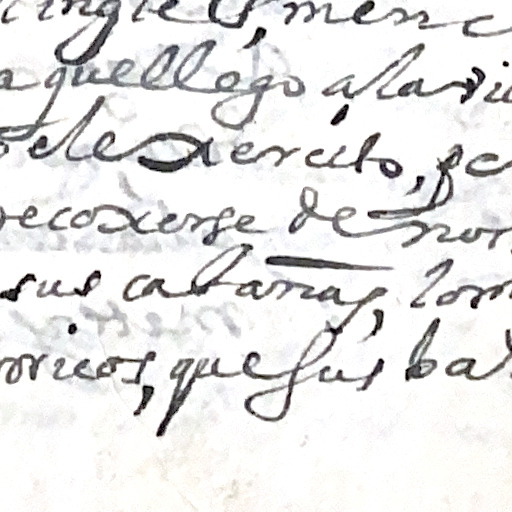 ingles, men
aquellego ala vi
el exercito, se
recoxerse de nor
sus cabanas, lom
oricos, que sus ba